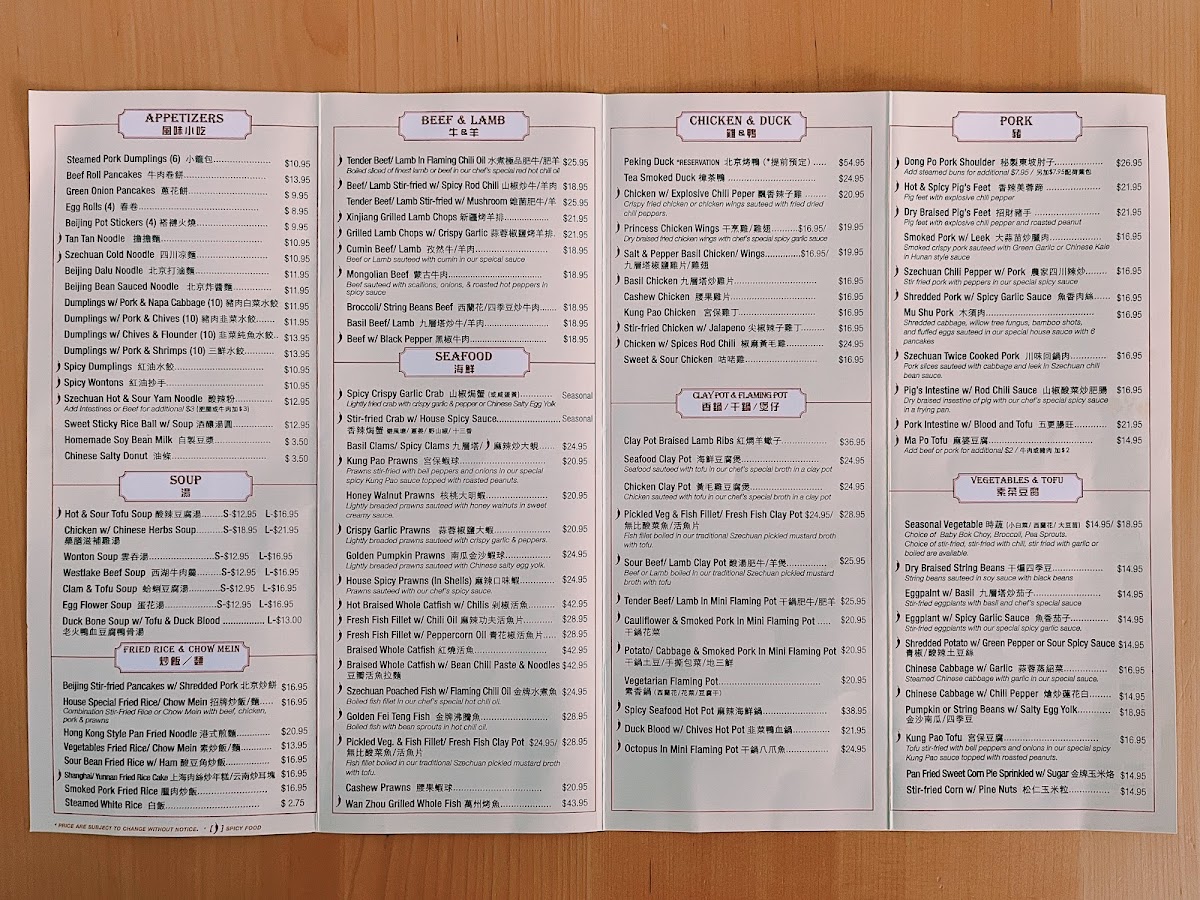 APPETIZERS
風味小吃
Steamed Pork Dumplings (6) 小籠包........................ $10.95
Beef Roll Pancakes 牛肉卷餅........................ $13.95
Green Onion Pancakes 蔥花餅........................ $ 9.95
Egg Rolls (4) 春卷........................ $ 8.95
Beijing Pot Stickers (4) 褡褳火燒........................ $ 9.95
Tan Tan Noodle 擔擔麵........................ $10.95
Szechuan Cold Noodle 四川凉麵........................ $10.95
Beijing Dalu Noodle 北京打滷麵........................ $11.95
Beijing Bean Sauced Noodle 北京炸醬麵................ $11.95
Dumplings w/ Pork & Napa Cabbage (10) 豬肉白菜水餃 $11.95
Dumplings w/ Pork & Chives (10) 豬肉韭菜水餃...... $11.95
Dumplings w/ Chives & Flounder (10) 韭菜純魚水餃.. $13.95
Dumplings w/ Pork & Shrimps (10) 三鮮水餃........... $13.95
Spicy Dumplings 紅油水餃........................ $10.95
Spicy Wontons 紅油抄手........................ $10.95
Szechuan Hot & Sour Yam Noodle 酸辣粉........... $12.95
Add Intestines or Beef for additional $3 (肥腸或牛肉加$3)
Sweet Sticky Rice Ball w/ Soup 酒釀湯圓........... $12.95
Homemade Soy Bean Milk 自製豆漿........................ $ 3.50
Chinese Salty Donut 油條........................ $ 3.50
SOUP
湯
Hot & Sour Tofu Soup 酸辣豆腐湯........S-$12.95 L-$16.95
Chicken w/ Chinese Herbs Soup........S-$18.95 L-$21.95
藥膳滋補雞湯
Wonton Soup 雲吞湯........................S-$12.95 L-$16.95
Westlake Beef Soup 西湖牛肉羹.........S-$12.95 L-$16.95
Clam & Tofu Soup 蛤蜊豆腐湯............S-$12.95 L-$16.95
Egg Flower Soup 蛋花湯..................S-$12.95 L-$16.95
Duck Bone Soup w/ Tofu & Duck Blood ............... L-$13.00
老火鴨血豆腐鴨骨湯
FRIED RICE & CHOW MEIN
炒飯／麵
Beijing Stir-fried Pancakes w/ Shredded Pork 北京炒餅 $16.95
House Special Fried Rice/ Chow Mein 招牌炒飯/麵..... $16.95
Combination Stir-Fried Rice or Chow Mein with beef, chicken,
pork & prawns
Hong Kong Style Pan Fried Noodle 港式煎麵........... $20.95
Vegetables Fried Rice/ Chow Mein 素炒飯/麵........... $13.95
Sour Bean Fried Rice w/ Ham 酸豆角炒飯............... $16.95
Shanghai/ Yunnan Fried Rice Cake 上海肉絲炒年糕/云南炒耳塊 $16.95
Smoked Pork Fried Rice 臘肉炒飯........................ $16.95
Steamed White Rice 白飯........................ $ 2.75
* PRICE ARE SUBJECT TO CHANGE WITHOUT NOTICE. * [ ] SPICY FOOD
BEEF & LAMB
牛&羊
Tender Beef/ Lamb In Flaming Chili Oil 水煮極品肥牛/肥羊 $25.95
Boiled sliced of finest lamb or beef in our chef's special red hot chili oil
Beef/ Lamb Stir-fried w/ Spicy Rod Chili 山椒炒牛/羊肉 $18.95
Tender Beef/ Lamb Stir-fried w/ Mushroom 雜菌肥牛/羊 $25.95
Xinjiang Grilled Lamb Chops 新疆烤羊排.................. $21.95
Grilled Lamb Chops w/ Crispy Garlic 蒜蓉椒鹽烤羊排. $21.95
Cumin Beef/ Lamb 孜然牛/羊肉........................ $18.95
Beef or Lamb sauteed with cumin in our speical sauce
Mongolian Beef 蒙古牛肉........................ $18.95
Beef sauteed with scallions, onions, & roasted hot peppers in
spicy sauce
Broccoli/ String Beans Beef 西蘭花/四季豆炒牛肉...... $18.95
Basil Beef/ Lamb 九層塔炒牛/羊肉........................ $18.95
Beef w/ Black Pepper 黑椒牛肉........................ $18.95
SEAFOOD
海鮮
Spicy Crispy Garlic Crab 山椒焗蟹 (或咸蛋黃)............ Seasonal
Lightly fried crab with crispy garlic & pepper or Chinese Salty Egg Yolk
Stir-fried Crab w/ House Spicy Sauce........................ Seasonal
香辣焗蟹 避風塘/薑蔥/野山椒/十三香
Basil Clams/ Spicy Clams 九層塔/ 麻辣炒大蜆...... $24.95
Kung Pao Prawns 宮保蝦球........................ $20.95
Prawns stir-fried with bell peppers and onions in our special
spicy Kung Pao sauce topped with roasted peanuts.
Honey Walnut Prawns 核桃大明蝦........................ $20.95
Lightly breaded prawns sauteed with honey walnuts in sweet
creamy sauce.
Crispy Garlic Prawns 蒜蓉椒鹽大蝦........................ $20.95
Lightly breaded prawns sauteed with crispy garlic & peppers.
Golden Pumpkin Prawns 南瓜金沙蝦球.................. $24.95
Lightly breaded prawns sauteed with Chinese salty egg yolk.
House Spicy Prawns (In Shells) 麻辣口味蝦............ $24.95
Prawns sauteed with our chef's spicy sauce.
Hot Braised Whole Catfish w/ Chilis 剁椒活魚......... $42.95
Fresh Fish Fillet w/ Chili Oil 麻辣功夫活魚片............ $28.95
Fresh Fish Fillet w/ Peppercorn Oil 青花椒活魚片..... $28.95
Braised Whole Catfish 紅燒活魚........................ $42.95
Braised Whole Catfish w/ Bean Chili Paste & Noodles $42.95
豆瓣活魚拉麵
Szechuan Poached Fish w/ Flaming Chili Oil 金牌水煮魚 $24.95
Boiled fish fillet in our chef's special hot chili oil.
Golden Fei Teng Fish 金牌沸騰魚........................ $28.95
Boiled fish with bean sprouts in hot chili oil.
Pickled Veg. & Fish Fillet/ Fresh Fish Clay Pot $24.95/ $28.95
無比酸菜魚/活魚片
Fish fillet boiled in our traditional Szechuan pickled mustard broth
with tofu.
Cashew Prawns 腰果蝦球........................ $20.95
Wan Zhou Grilled Whole Fish 萬州烤魚.................. $43.95
CHICKEN & DUCK
雞&鴨
Peking Duck *RESERVATION 北京烤鴨 (*提前預定) ..... $54.95
Tea Smoked Duck 樟茶鴨........................ $24.95
Chicken w/ Explosive Chili Peper 飄香辣子雞............ $20.95
Crispy fried chicken or chicken wings sauteed with fried dried
chili peppers.
Princess Chicken Wings 干烹雞/雞翅..........$16.95/ $19.95
Dry braised fried chicken wings with chef's special spicy garlic sauce
Salt & Pepper Basil Chicken/ Wings............$16.95/ $19.95
九層塔椒鹽雞片/雞翅
Basil Chicken 九層塔炒雞片........................ $16.95
Cashew Chicken 腰果雞片........................ $16.95
Kung Pao Chicken 宮保雞丁........................ $16.95
Stir-fried Chicken w/ Jalapeno 尖椒辣子雞丁............ $16.95
Chicken w/ Spices Rod Chili 椒麻黃毛雞.................. $24.95
Sweet & Sour Chicken 咕咾雞........................ $16.95
CLAY POT & FLAMING POT
香鍋/干鍋/煲仔
Clay Pot Braised Lamb Ribs 紅燜羊蠍子.................. $36.95
Seafood Clay Pot 海鮮豆腐煲........................ $24.95
Seafood sauteed with tofu in our chef's special broth in a clay pot
Chicken Clay Pot 黃毛雞豆腐煲........................ $24.95
Chicken sauteed with tofu in our chef's special broth in a clay pot
Pickled Veg & Fish Fillet/ Fresh Fish Clay Pot $24.95/ $28.95
無比酸菜魚/活魚片
Fish fillet boiled in our traditional Szechuan pickled mustard broth
with tofu.
Sour Beef/ Lamb Clay Pot 酸湯肥牛/羊煲............... $25.95
Beef or Lamb boiled in our traditional Szechuan pickled mustard
broth with tofu
Tender Beef/ Lamb In Mini Flaming Pot 干鍋肥牛/肥羊 $25.95
Cauliflower & Smoked Pork In Mini Flaming Pot ..... $20.95
干鍋花菜
Potato/ Cabbage & Smoked Pork In Mini Flaming Pot $20.95
干鍋土豆/手撕包菜/地三鮮
Vegetarian Flaming Pot........................ $20.95
素香鍋 (西蘭花/花菜/豆腐干)
Spicy Seafood Hot Pot 麻辣海鮮鍋........................ $38.95
Duck Blood w/ Chives Hot Pot 韭菜鴨血鍋............... $21.95
Octopus In Mini Flaming Pot 干鍋八爪魚.................. $24.95
PORK
豬
Dong Po Pork Shoulder 秘製東坡肘子.................. $26.95
Add steamed buns for additional $7.95 / 另加$7.95配荷葉包
Hot & Spicy Pig's Feet 香辣美蓉蹄........................ $21.95
Pig feet with explosive chili pepper
Dry Braised Pig's Feet 招財豬手........................ $21.95
Pig feet with explosive chili pepper and roasted peanut
Smoked Pork w/ Leek 大蒜苗炒臘肉.................. $16.95
Smoked crispy pork sauteed with Green Garlic or Chinese Kale
in Hunan style sauce
Szechuan Chili Pepper w/ Pork 農家四川辣炒......... $16.95
Stir fried pork with peppers in our special spicy sauce
Shredded Pork w/ Spicy Garlic Sauce 魚香肉絲...... $16.95
Mu Shu Pork 木須肉........................ $16.95
Shredded cabbage, willow tree fungus, bamboo shots,
and fluffed eggs sauteed in our special house sauce with 6
pancakes
Szechuan Twice Cooked Pork 川味回鍋肉............... $16.95
Pork slices sauteed with cabbage and leek in Szechuan chili
bean sauce.
Pig's Intestine w/ Rod Chili Sauce 山椒酸菜炒肥腸 $16.95
Dry braised insestine of pig with our chef's special spicy sauce
in a frying pan.
Pork Intestine w/ Blood and Tofu 五更腸旺............ $21.95
Ma Po Tofu 麻婆豆腐........................ $14.95
Add beef or pork for additional $2 / 牛肉或豬肉 加$2
VEGETABLES & TOFU
素菜豆腐
Seasonal Vegetable 時蔬 (小白菜/西蘭花/大豆苗) $14.95/ $18.95
Choice of Baby Bok Choy, Broccoli, Pea Sprouts.
Choice of stir-fried, stir-fried with chili, stir fried with garlic or
boiled are available.
Dry Braised String Beans 干煸四季豆.................. $14.95
String beans sauteed in soy sauce with black beans
Eggpalnt w/ Basil 九層塔炒茄子........................ $14.95
Stir-fried eggplants with basil and chef's special sauce
Eggplant w/ Spicy Garlic Sauce 魚香茄子............... $14.95
Stir-fried eggplants with our special spicy garlic sauce.
Shredded Potato w/ Green Pepper or Sour Spicy Sauce $14.95
青椒/酸辣土豆絲
Chinese Cabbage w/ Garlic 蒜蓉蒸紹菜............... $16.95
Steamed Chinese cabbage with garlic in our special sauce.
Chinese Cabbage w/ Chili Pepper 熗炒蓮花白......... $14.95
Pumpkin or String Beans w/ Salty Egg Yolk............ $18.95
金沙南瓜/四季豆
Kung Pao Tofu 宮保豆腐........................ $16.95
Tofu stir-fried with bell peppers and onions in our special spicy
Kung Pao sauce topped with roasted peanuts.
Pan Fried Sweet Corn Pie Sprinkled w/ Sugar 金牌玉米烙 $14.95
Stir-fried Corn w/ Pine Nuts 松仁玉米粒............... $14.95